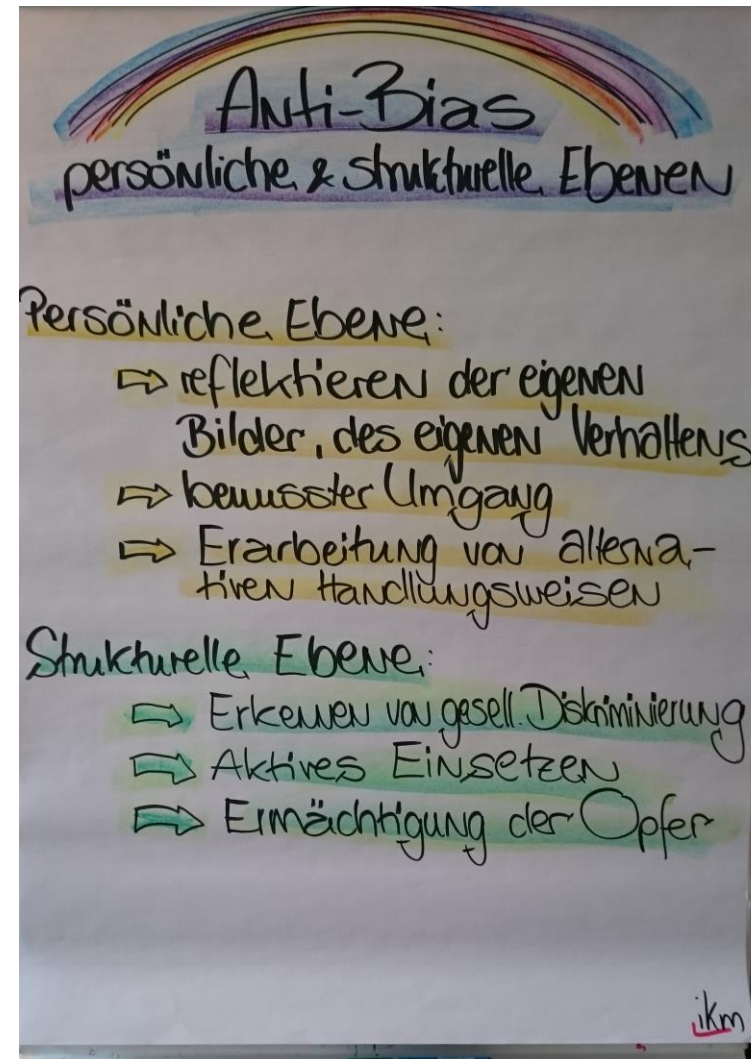 Anti-Bias
persönliche & strukturelle Ebenen
Persönliche Ebene:
⇨ reflektieren der eigenen
Bilder, des eigenen Verhaltens
⇨ bewusster Umgang
⇨ Erarbeitung von alterna-
tiven Handlungsweisen
Strukturelle Ebene:
⇨ Erkennen von gesell. Diskriminierung
⇨ Aktives Einsetzen
⇨ Ermächtigung der Opfer
ikm